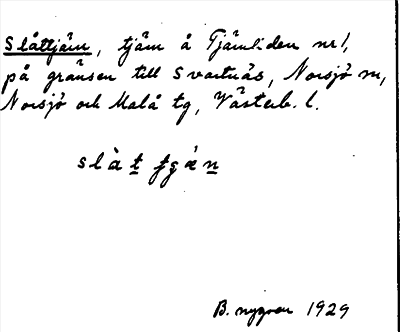 Slåttjärn, tjärn å Tjärnliden nr 1,
på gränsen till Svartnäs, Norsjö sn,
Norsjö och Malå tg, Västerb. l.
B. Nygren 1929